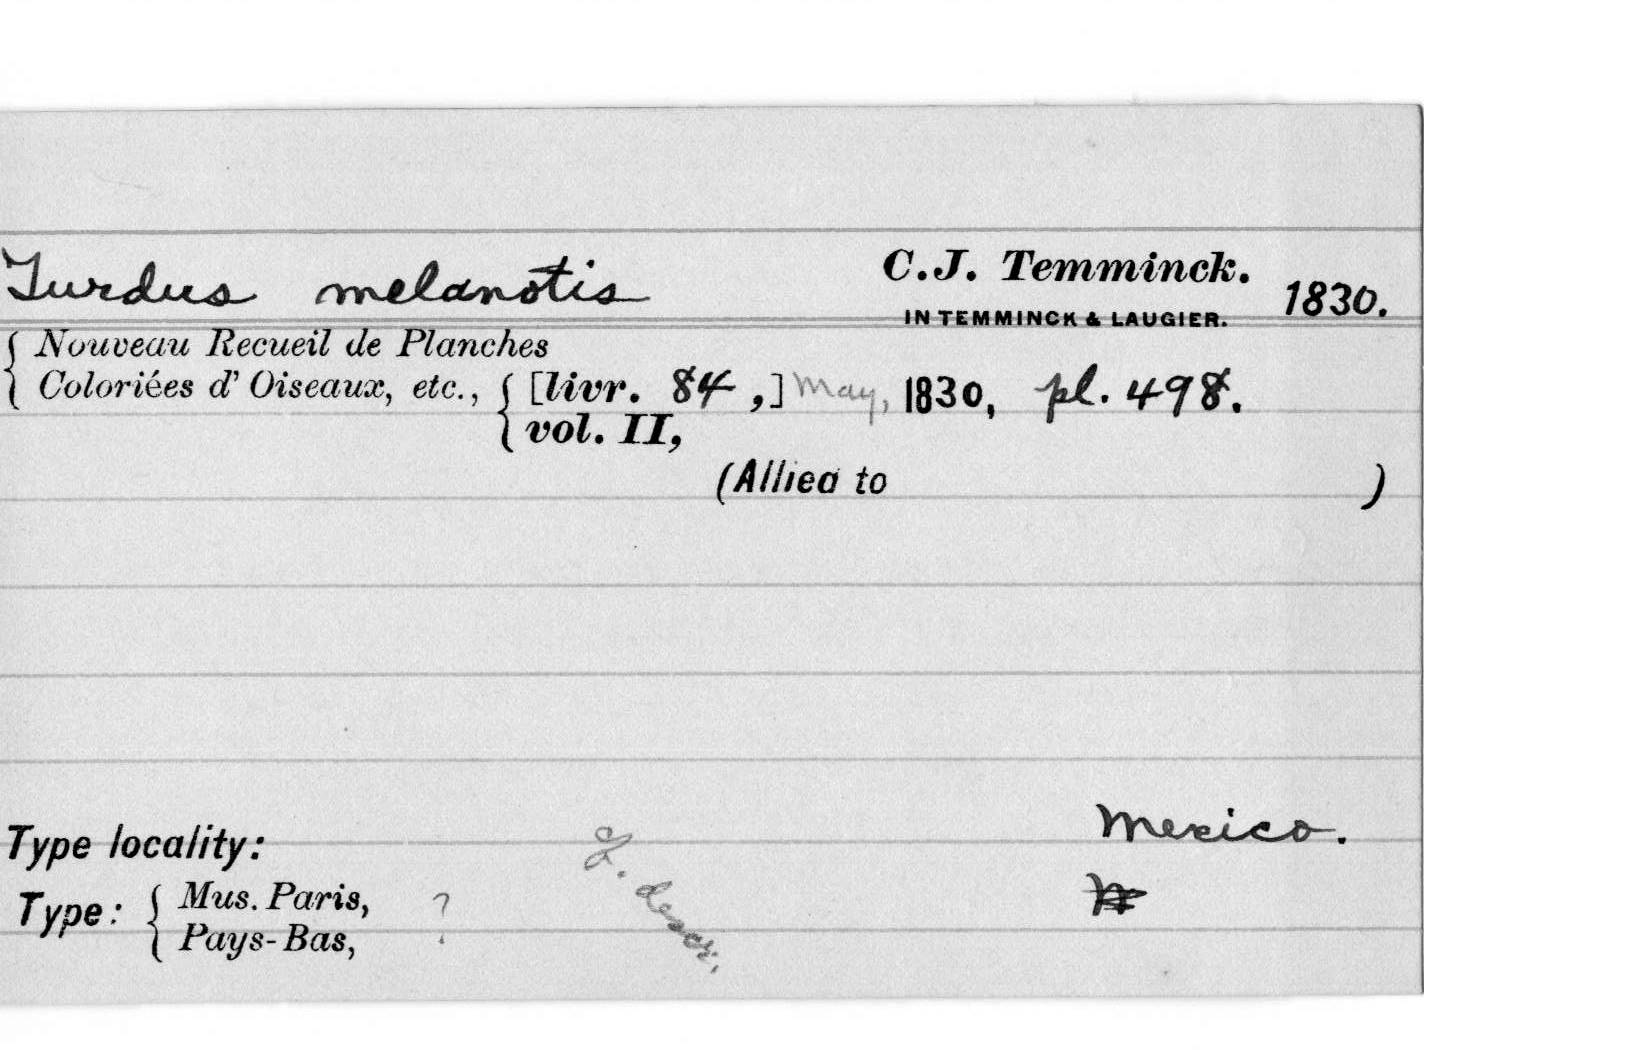 Turdus melanotis C.J. Temminck. 1830.
IN TEMMINCK & LAUGIER.
Nouveau Recueil de Planches
Coloriées d' Oiseaux, etc., [livr. 84 ,] May, 1830, pl. 498.
vol. II,
(Allied to )
Type locality: Mexico.
Type: Mus. Paris, ?
Pays-Bas,
descr.